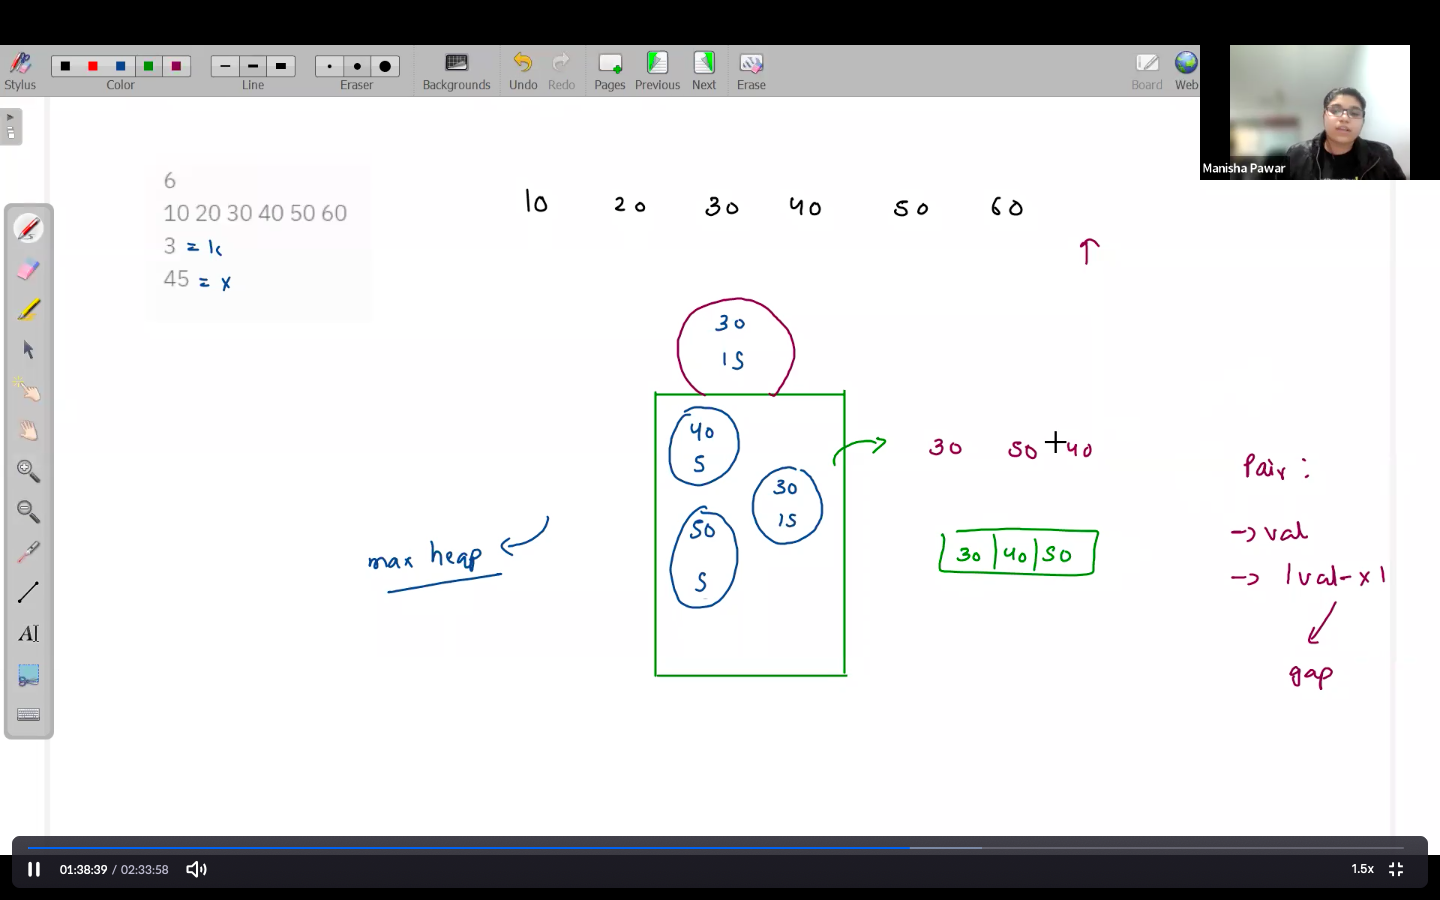 Stylus Color Line Eraser Backgrounds Undo Redo Pages Previous Next Erase Board Web
Manisha Pawar
6
10 20 30 40 50 60
3 = k
45 = x
10 20 30 40 50 60
30
15
40
5
30
15
50
5
max heap
30 50 40
30 40 50
Pair :
→ val
→ |val - x|
gap
AI
01:38:39 / 02:33:58
1.5x